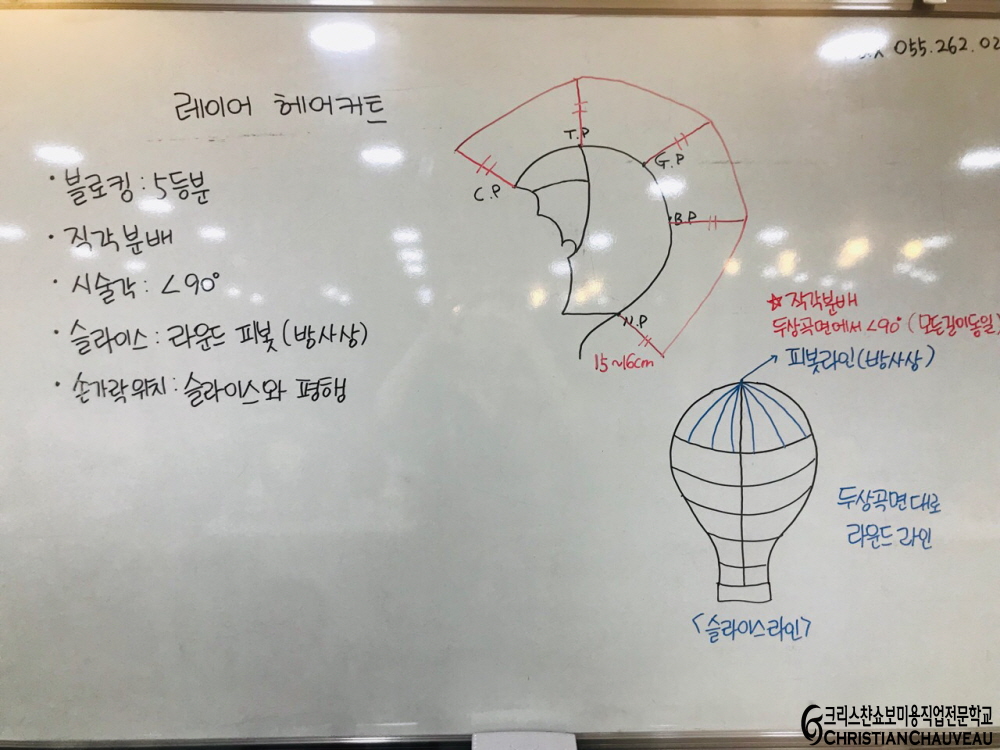 055.262.02
레이어 헤어커트
• 블로킹 : 5등분
• 직각분배
• 시술각 : ∠90°
• 슬라이스 : 라운드 피봇 (방사상)
• 손가락위치 : 슬라이스와 평행
T.P
G.P
C.P
B.P
N.P
15~16cm
☆ 직각분배
두상곡면에서 ∠90° (모든길이동일)
피봇라인(방사상)
두상곡면대로
라운드 라인
<슬라이스라인>
크리스챤쇼보미용직업전문학교
CHRISTIANCHAUVEAU